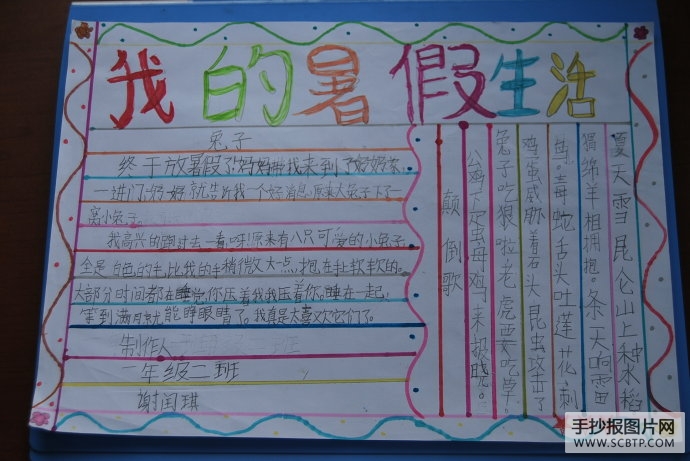 我的暑假生活
兔子
终于放暑假了妈妈带我来到了奶奶家，
一进门奶奶就告诉我一个好消息，原来大兔子下了一
窝小兔子。
我高兴的跑过去一看，呀！原来有八只可爱的小兔子，
全是白色的毛，比我的手稍微大一点，抱在手里软软的。
大部分时间都在睡觉，你压着我我压着你。睡在一起！
等到满月就能睁眼睛了。我真是太喜欢它们了。
制作人
一年级二班
谢闰琪
颠倒歌
夏天雪昆仑山上种水稻
绵羊相拥抱。冬天响雷
鸟。毒蛇舌头吐莲花，刺
鸡蛋威胁着石头昆虫攻击了
兔子吃狼啦老虎要吃草。
公鸡下蛋母鸡来报晓。
手抄报图片网
WWW.SCBTP.COM